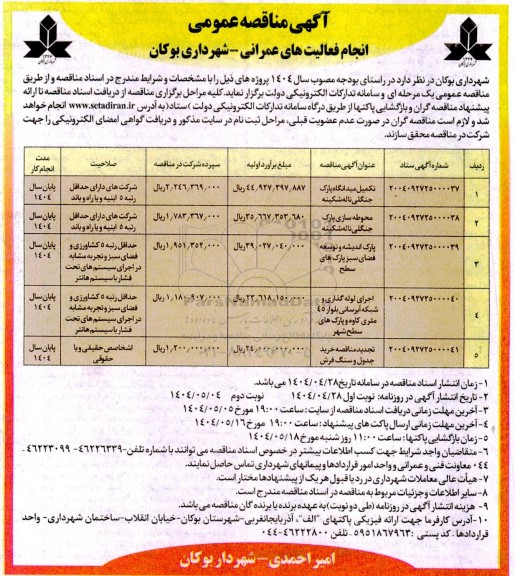 آگهی مناقصه عمومی
انجام فعالیت های عمرانی - شهرداری بوکان
شهرداری بوکان در نظر دارد در راستای بودجه مصوب سال ۱۴۰۴ پروژه های ذیل را با مشخصات و شرایط مندرج در اسناد مناقصه و از طریق
مناقصه عمومی یک مرحله ای و سامانه تدارکات الکترونیکی دولت برگزار نماید. کلیه مراحل برگزاری مناقصه از دریافت اسناد مناقصه تا ارائه
پیشنهاد مناقصه گران و بازگشایی پاکتها از طریق درگاه سامانه تدارکات الکترونیکی دولت (ستاد) به آدرس www.setadiran.ir انجام خواهد
شد و لازم است مناقصه گران در صورت عدم عضویت قبلی، مراحل ثبت نام در سایت مذکور و دریافت گواهی امضای الکترونیکی را جهت
شرکت در مناقصه محقق سازند.
ردیف شماره آگهی ستاد عنوان آگهی مناقصه مبلغ برآورد اولیه سپرده شرکت در مناقصه صلاحیت مدت انجام کار
۱ ۲۰۰۴۰۹۲۷۲۵۰۰۰۰۳۷ تکمیل میدانگاه پارک جنگلی ناله شکینه ۴۴,۹۲۷,۳۹۷,۸۸۷ ریال ۲,۲۴۶,۳۶۹,۰۰۰ ریال شرکت های دارای حداقل رتبه ۵ ابنیه و یا راه و باند پایان سال ۱۴۰۴
۲ ۲۰۰۴۰۹۲۷۲۵۰۰۰۰۳۸ محوطه سازی پارک جنگلی ناله شکینه ۳۵,۶۶۷,۳۵۳,۶۸۰ ریال ۱,۷۸۳,۳۶۷,۰۰۰ ریال شرکت های دارای حداقل رتبه ۵ ابنیه و یا راه و باند پایان سال ۱۴۰۴
۳ ۲۰۰۴۰۹۲۷۲۵۰۰۰۰۳۹ پارک اندیشه و توسعه فضای سبز پارک های سطح ۳۹,۰۲۷,۰۴۰,۰۰۰ ریال ۱,۹۵۱,۳۵۲,۰۰۰ ریال حداقل رتبه ۵ کشاورزی و فضای سبز و تجربه مشابه در اجرای سیستم های تحت فشار با سیستم هانتر پایان سال ۱۴۰۴
۴ ۲۰۰۴۰۹۲۷۲۵۰۰۰۰۴۰ اجرای لوله گذاری و شبکه آبرسانی بلوار ۴۵ متری کاوه و پارک های سطح شهر ۲۳,۶۱۸,۱۵۰,۰۰۰ ریال ۱,۱۸۰,۹۰۷,۰۰۰ ریال حداقل رتبه ۵ کشاورزی و فضای سبز و تجربه مشابه در اجرای سیستم های تحت فشار با سیستم هانتر پایان سال ۱۴۰۴
۵ ۲۰۰۴۰۹۲۷۲۵۰۰۰۰۴۱ تجدید مناقصه خرید جدول و سنگ فرش ۲۴,۰۰۰,۰۰۰,۰۰۰ ریال ۱,۲۰۰,۰۰۰,۰۰۰ ریال اشخاص حقیقی و یا حقوقی پایان سال ۱۴۰۴
۱- زمان انتشار اسناد مناقصه در سامانه تاریخ ۱۴۰۴/۰۴/۲۸ می باشد.
۲- تاریخ انتشار آگهی در روزنامه: نوبت اول ۱۴۰۴/۰۴/۲۸ نوبت دوم ۱۴۰۴/۰۵/۰۴
۳- آخرین مهلت زمانی دریافت اسناد مناقصه از سایت: ساعت ۱۹:۰۰ مورخ ۱۴۰۴/۰۵/۰۵
۴- آخرین مهلت زمانی ارسال پاکت های پیشنهاد: ساعت ۱۹:۰۰ مورخ ۱۴۰۴/۰۵/۱۶
۵- زمان بازگشایی پاکتها: ساعت ۱۱:۰۰ روز شنبه مورخ ۱۴۰۴/۰۵/۱۸
۶- متقاضیان واجد شرایط جهت کسب اطلاعات بیشتر در خصوص اسناد مناقصه می توانند با شماره تلفن ۴۶۲۲۶۳۳۹- ۴۶۲۲۳۰۹۹-
۰۴۴ معاونت فنی و عمرانی و واحد امور قراردادها و پیمانهای شهرداری تماس حاصل نمایند.
۷- هیأت عالی معاملات شهرداری در رد یا قبول هر یک از پیشنهادها مختار است.
۸- سایر اطلاعات و جزئیات مربوط به مناقصه در اسناد مناقصه مندرج است.
۹- هزینه انتشار آگهی در روزنامه (طی دو نوبت) به عهده برنده یا برنده گان مناقصه می باشد.
۱۰- آدرس کارفرما جهت ارائه فیزیکی پاکتهای "الف"، آذربایجانغربی-شهرستان بوکان-خیابان انقلاب-ساختمان شهرداری- واحد
قراردادها. کد پستی : ۵۹۵۱۸۶۷۹۶۳ . تلفن ۴۶۲۲۲۸۰۰-۰۴۴
امیر احمدی - شهردار بوکان